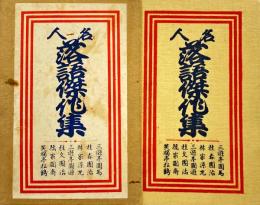 名人
落語傑作集
三遊亭圓馬
桂春團治
林家
三遊亭圓遊
桂文團治
笑福亭松鶴
名人
落語傑作集
三遊亭圓馬
桂春團治
林家
三遊亭圓遊
桂文團治
笑福亭松鶴